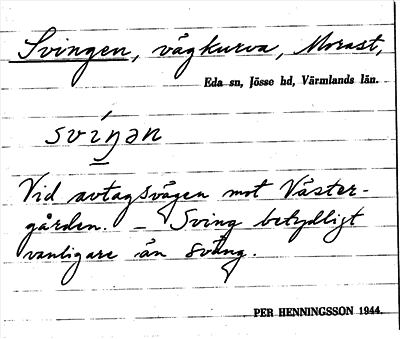 Svingen, vägkurva, Morast,
Eda sn, Jösse hd, Värmlands län.
svíŋən
Vid avtagsvägen mot Väster-
gården. — Sving betydligt
vanligare än sväng.
PER HENNINGSSON 1944.